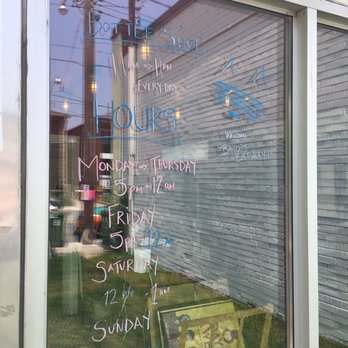 BOTTLE SHOP
11AM → 11PM
EVERYDAY
HOURS
MONDAY → THURSDAY
5pm - 12am
FRIDAY
5pm -
SATURDAY
12pm - 1am
SUNDAY